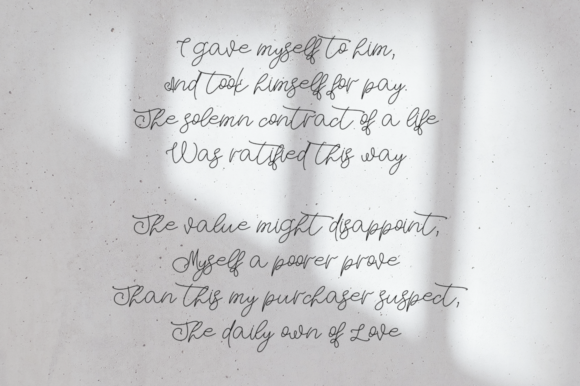 I gave myself to him,
And took himself for pay.
The solemn contract of a life
Was ratified this way

The value might disappoint,
Myself a poorer prove
Than this my purchaser suspect,
The daily own of Love